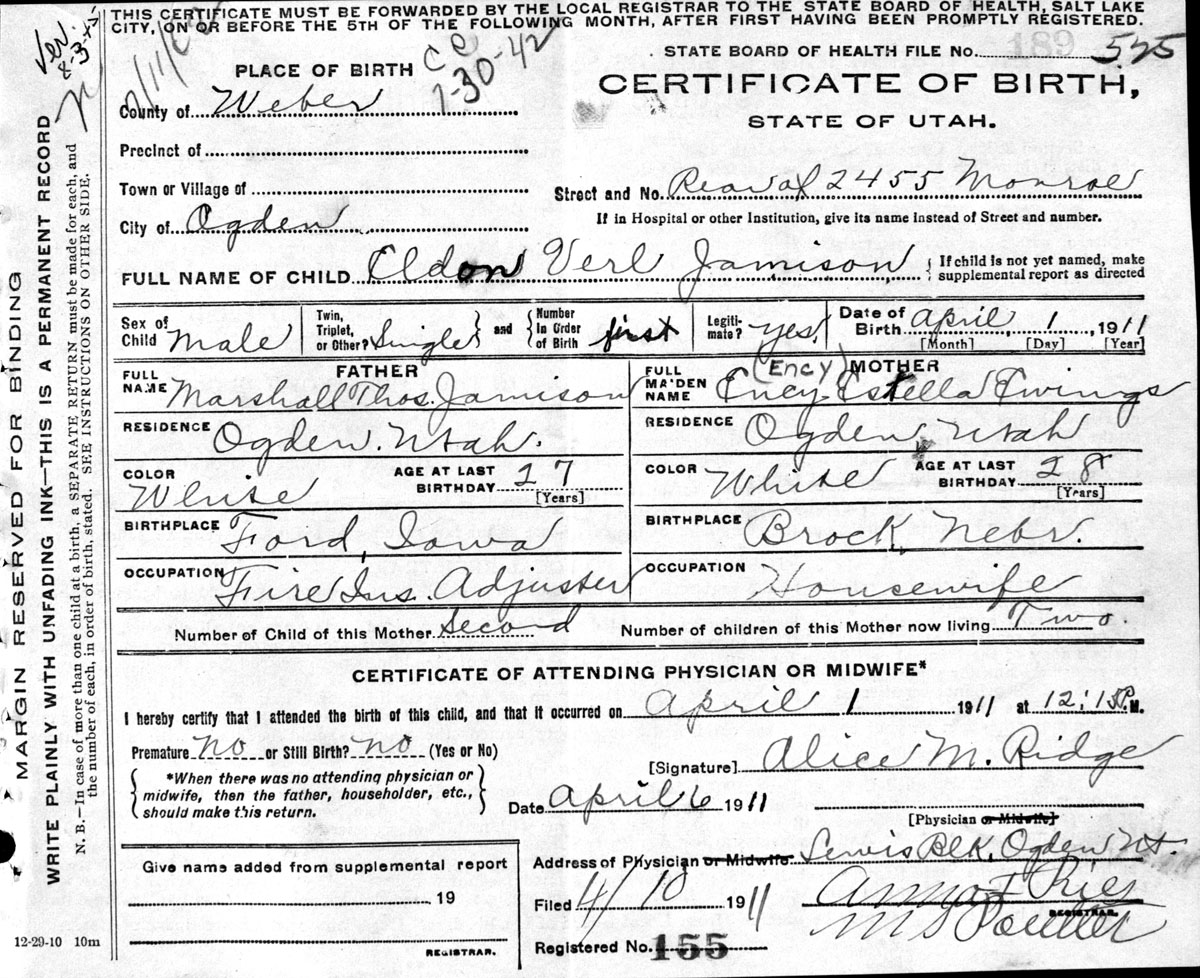 THIS CERTIFICATE MUST BE FORWARDED BY THE LOCAL REGISTRAR TO THE STATE BOARD OF HEALTH, SALT LAKE
CITY, ON OR BEFORE THE 5TH OF THE FOLLOWING MONTH, AFTER FIRST HAVING BEEN PROMPTLY REGISTERED.
Ver.
8-3-
STATE BOARD OF HEALTH FILE NO. 189 525
PLACE OF BIRTH
1-30-42
CERTIFICATE OF BIRTH,
STATE OF UTAH.
County of Weber
Precinct of
Town or Village of
Street and No. Rear of 2455 Monroe
City of Ogden
If in Hospital or other Institution, give its name instead of Street and number.
FULL NAME OF CHILD Eldon Verl Jamison { If child is not yet named, make
supplemental report as directed
Sex of Child Male
Twin, Triplet, or Other? Single } and { Number In Order of Birth first
Legiti-mate? yes.
Date of Birth April 1, 1911
[Month] [Day] [Year]
FATHER
FULL NAME Marshall Thos. Jamison
RESIDENCE Ogden. Utah.
COLOR White AGE AT LAST BIRTHDAY 27
[Years]
BIRTHPLACE Ford, Iowa
OCCUPATION Fire Ins. Adjuster
(Ency) MOTHER
FULL MAIDEN NAME Ency Estella Ewings
RESIDENCE Ogden, Utah
COLOR White AGE AT LAST BIRTHDAY 28
[Years]
BIRTHPLACE Brock, Nebr.
OCCUPATION Housewife
Number of Child of this Mother Second Number of children of this Mother now living Two.
CERTIFICATE OF ATTENDING PHYSICIAN OR MIDWIFE*
I hereby certify that I attended the birth of this child, and that it occurred on April 1 1911 at 12:15 P. M.
Premature no or Still Birth? no (Yes or No)
[Signature] Alice M. Ridge
{ *When there was no attending physician or
midwife, then the father, householder, etc.,
should make this return. }
Date April 6 1911
[Physician or Midwife]
Give name added from supplemental report
19
REGISTRAR.
Address of Physician or Midwife Lewis Blk, Ogden Ut
Filed 4/10 1911 Anna F Ries
REGISTRAR.
Registered No. 155
12-29-10 10m
MARGIN RESERVED FOR BINDING
WRITE PLAINLY WITH UNFADING INK—THIS IS A PERMANENT RECORD
N. B.—In case of more than one child at a birth, a SEPARATE RETURN must be made for each, and
the number of each, in order of birth, stated. SEE INSTRUCTIONS ON OTHER SIDE.